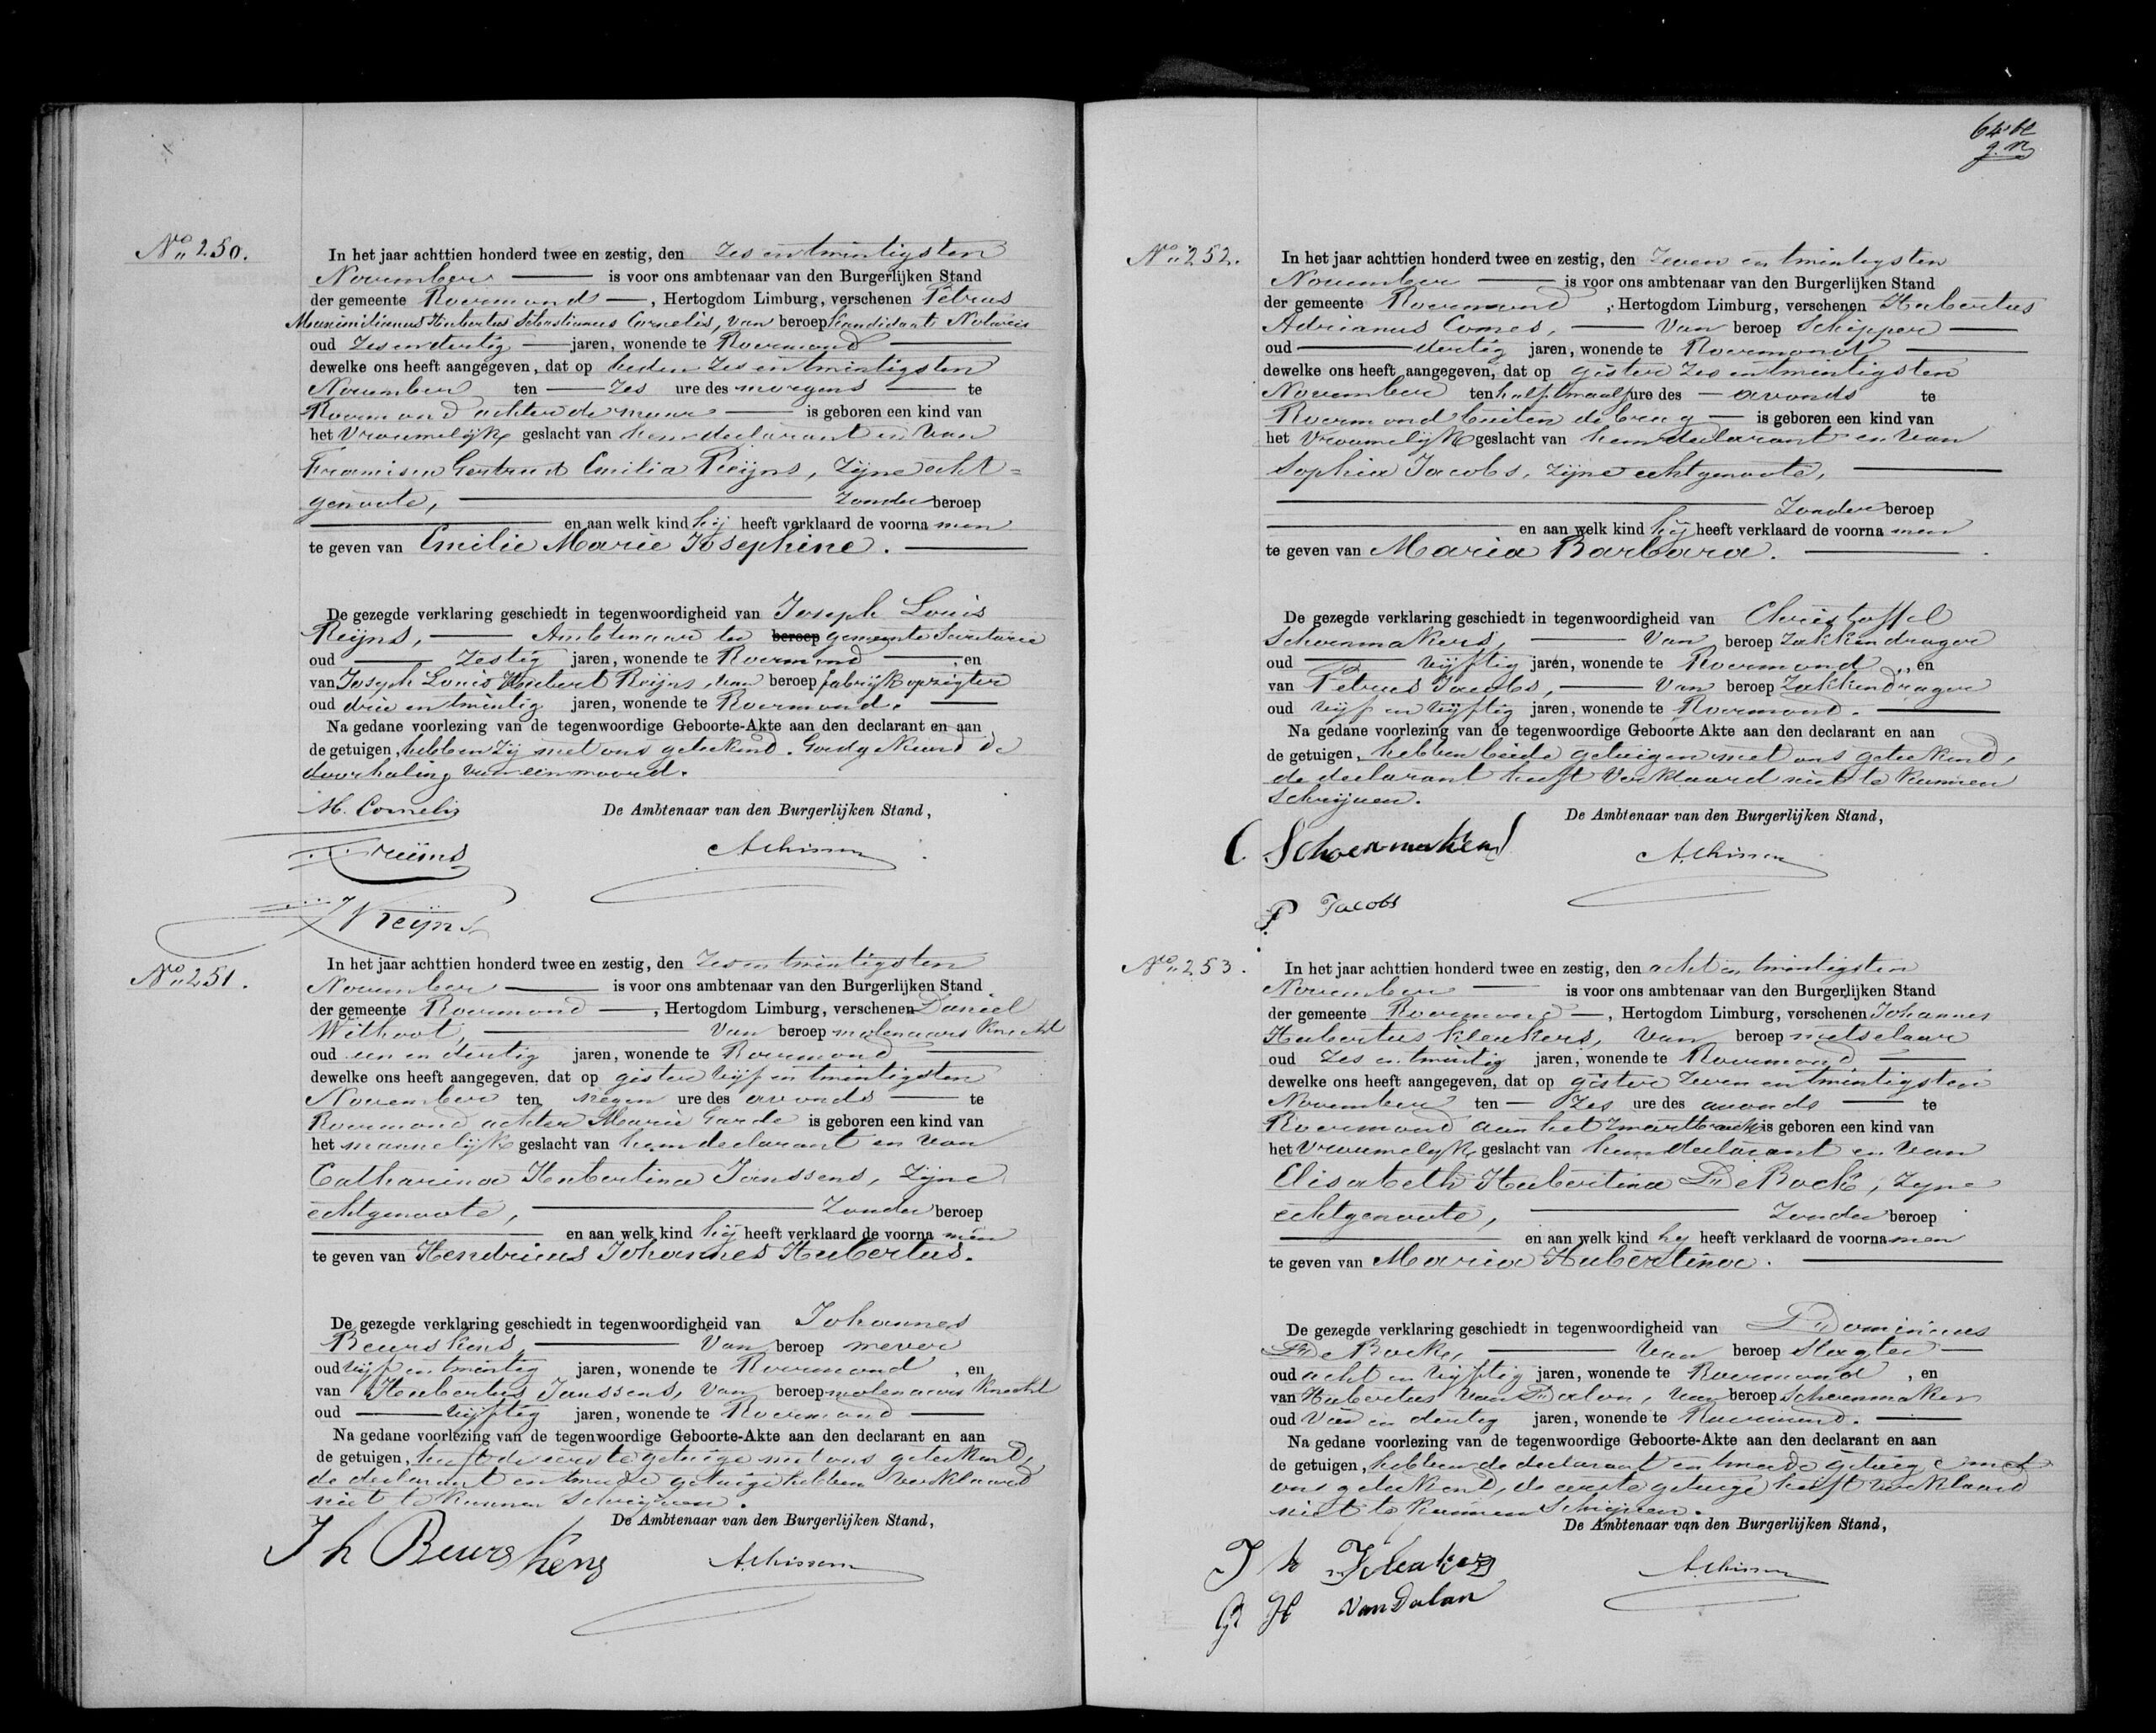 64e bl
No 250.
In het jaar achttien honderd twee en zestig, den Zes en twintigsten
November is voor ons ambtenaar van den Burgerlijken Stand
der gemeente Roermond, Hertogdom Limburg, verschenen Petrus
Maximilianus Hubertus Sebastianus Cornelis, van beroep Kandidaat Notaris
oud Zes en dertig jaren, wonende te Roermond
dewelke ons heeft aangegeven, dat op heden Zes en twintigsten
November ten Zes ure des morgens te
Roermond achter de muur is geboren een kind van
het Vrouwelijk geslacht van hem declarant en van
Francisca Gertrud Emilia Reijns, Zijne echt=
genoote, Zonder beroep
en aan welk kind hij heeft verklaard de voorna men
te geven van Emilie Marie Josephine.
De gezegde verklaring geschiedt in tegenwoordigheid van Joseph Louis
Reijns, Ambtenaar ter beroep gemeente Secretarie
oud Zestig jaren, wonende te Roermond, en
van Joseph Louis Hubert Reijns, van beroep fabrijk opzigter
oud drie en twintig jaren, wonende te Roermond.
Na gedane voorlezing van de tegenwoordige Geboorte-Akte aan den declarant en aan
de getuigen, hebben Zij met ons geteekend. Goedgekeurd de
doorhaling van een woord.
M. Cornelis
De Ambtenaar van den Burgerlijken Stand,
Reijns
No 251.
In het jaar achttien honderd twee en zestig, den Zes en twintigsten
November is voor ons ambtenaar van den Burgerlijken Stand
der gemeente Roermond, Hertogdom Limburg, verschenen Daniel
Withoot, Van beroep molenaars Knecht
oud een en dertig jaren, wonende te Roermond
dewelke ons heeft aangegeven, dat op gister Vijf en twintigsten
November ten negen ure des avonds te
Roermond achter Marie Garde is geboren een kind van
het mannelijk geslacht van hem declarant en van
Catharina Hubertina Janssens, Zijne
echtgenoote, Zonder beroep
en aan welk kind hij heeft verklaard de voorna men
te geven van Hendricus Johannes Hubertus.
De gezegde verklaring geschiedt in tegenwoordigheid van Johannes
Beurskens, Van beroep wever
oud Vijf en twintig jaren, wonende te Roermond, en
van Hubertus Janssens, Van beroep molenaars Knecht
oud Vijftig jaren, wonende te Roermond
Na gedane voorlezing van de tegenwoordige Geboorte-Akte aan den declarant en aan
de getuigen, heeft de eerste getuige met ons geteekend,
de declarant en tweede getuige hebben verklaard
niet te kunnen Schrijven.
De Ambtenaar van den Burgerlijken Stand,
J h Beurskens
No 252.
In het jaar achttien honderd twee en zestig, den Zeven en twintigsten
November is voor ons ambtenaar van den Burgerlijken Stand
der gemeente Roermond, Hertogdom Limburg, verschenen Hubertus
Adrianus Comes, Van beroep Schipper
oud dertig jaren, wonende te Roermond
dewelke ons heeft aangegeven, dat op gister Zes en twintigsten
November ten half twaalf ure des avonds te
Roermond buiten de brug is geboren een kind van
het Vrouwelijk geslacht van hem declarant en van
Sophia Jacobs, Zijne echtgenoote,
Zonder beroep
en aan welk kind hij heeft verklaard de voorna men
te geven van Maria Barbara.
De gezegde verklaring geschiedt in tegenwoordigheid van Christoffel
Schoenmakers, Van beroep Zakkendrager
oud Vijftig jaren, wonende te Roermond, en
van Petrus Jacobs, Van beroep Zakkendrager
oud Vijf en Vijftig jaren, wonende te Roermond.
Na gedane voorlezing van de tegenwoordige Geboorte Akte aan den declarant en aan
de getuigen, hebben beide getuigen met ons geteekend,
de declarant heeft Verklaard niet te kunnen
Schrijven.
De Ambtenaar van den Burgerlijken Stand,
C Schoenmakers
P Jacobs
No 253.
In het jaar achttien honderd twee en zestig, den acht en twintigsten
November is voor ons ambtenaar van den Burgerlijken Stand
der gemeente Roermond, Hertogdom Limburg, verschenen Johannes
Hubertus Kleukers, Van beroep metselaar
oud Zes en twintig jaren, wonende te Roermond
dewelke ons heeft aangegeven, dat op gister Zeven en twintigsten
November ten Zes ure des avonds te
Roermond aan het Zwartbroek is geboren een kind van
het Vrouwelijk geslacht van hem declarant en van
Elisabeth Hubertina De Bock, Zijne
echtgenoote, Zonder beroep
en aan welk kind hij heeft verklaard de voorna men
te geven van Maria Hubertina.
De gezegde verklaring geschiedt in tegenwoordigheid van Dominicus
De Bock, Van beroep Slagter
oud acht en Vijftig jaren, wonende te Roermond, en
van Hubertus Van Dalen, Van beroep Schoenmaker
oud Vier en dertig jaren, wonende te Roermond.
Na gedane voorlezing van de tegenwoordige Geboorte-Akte aan den declarant en aan
de getuigen, hebben de declarant en tweede getuige met
ons geteekend, de eerste getuige heeft verklaard
niet te kunnen Schrijven.
De Ambtenaar van den Burgerlijken Stand,
G H Van Dalen